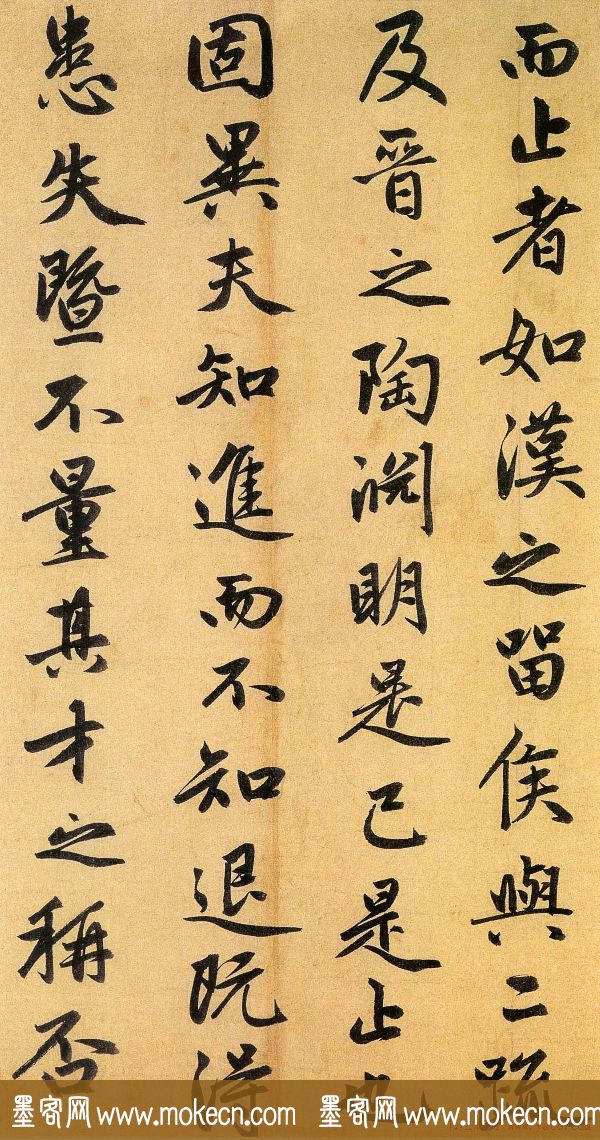 而止者如漢之留侯與二疏
及晋之陶淵明是已是止也
固異夫知進而不知退既得
患失暨不量其才之稱否
墨客网www.mokecn.com 墨客网www.mokecn.com